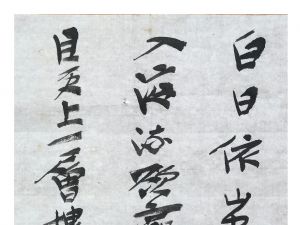 白日依山
入海流欲窮
目更上一層樓